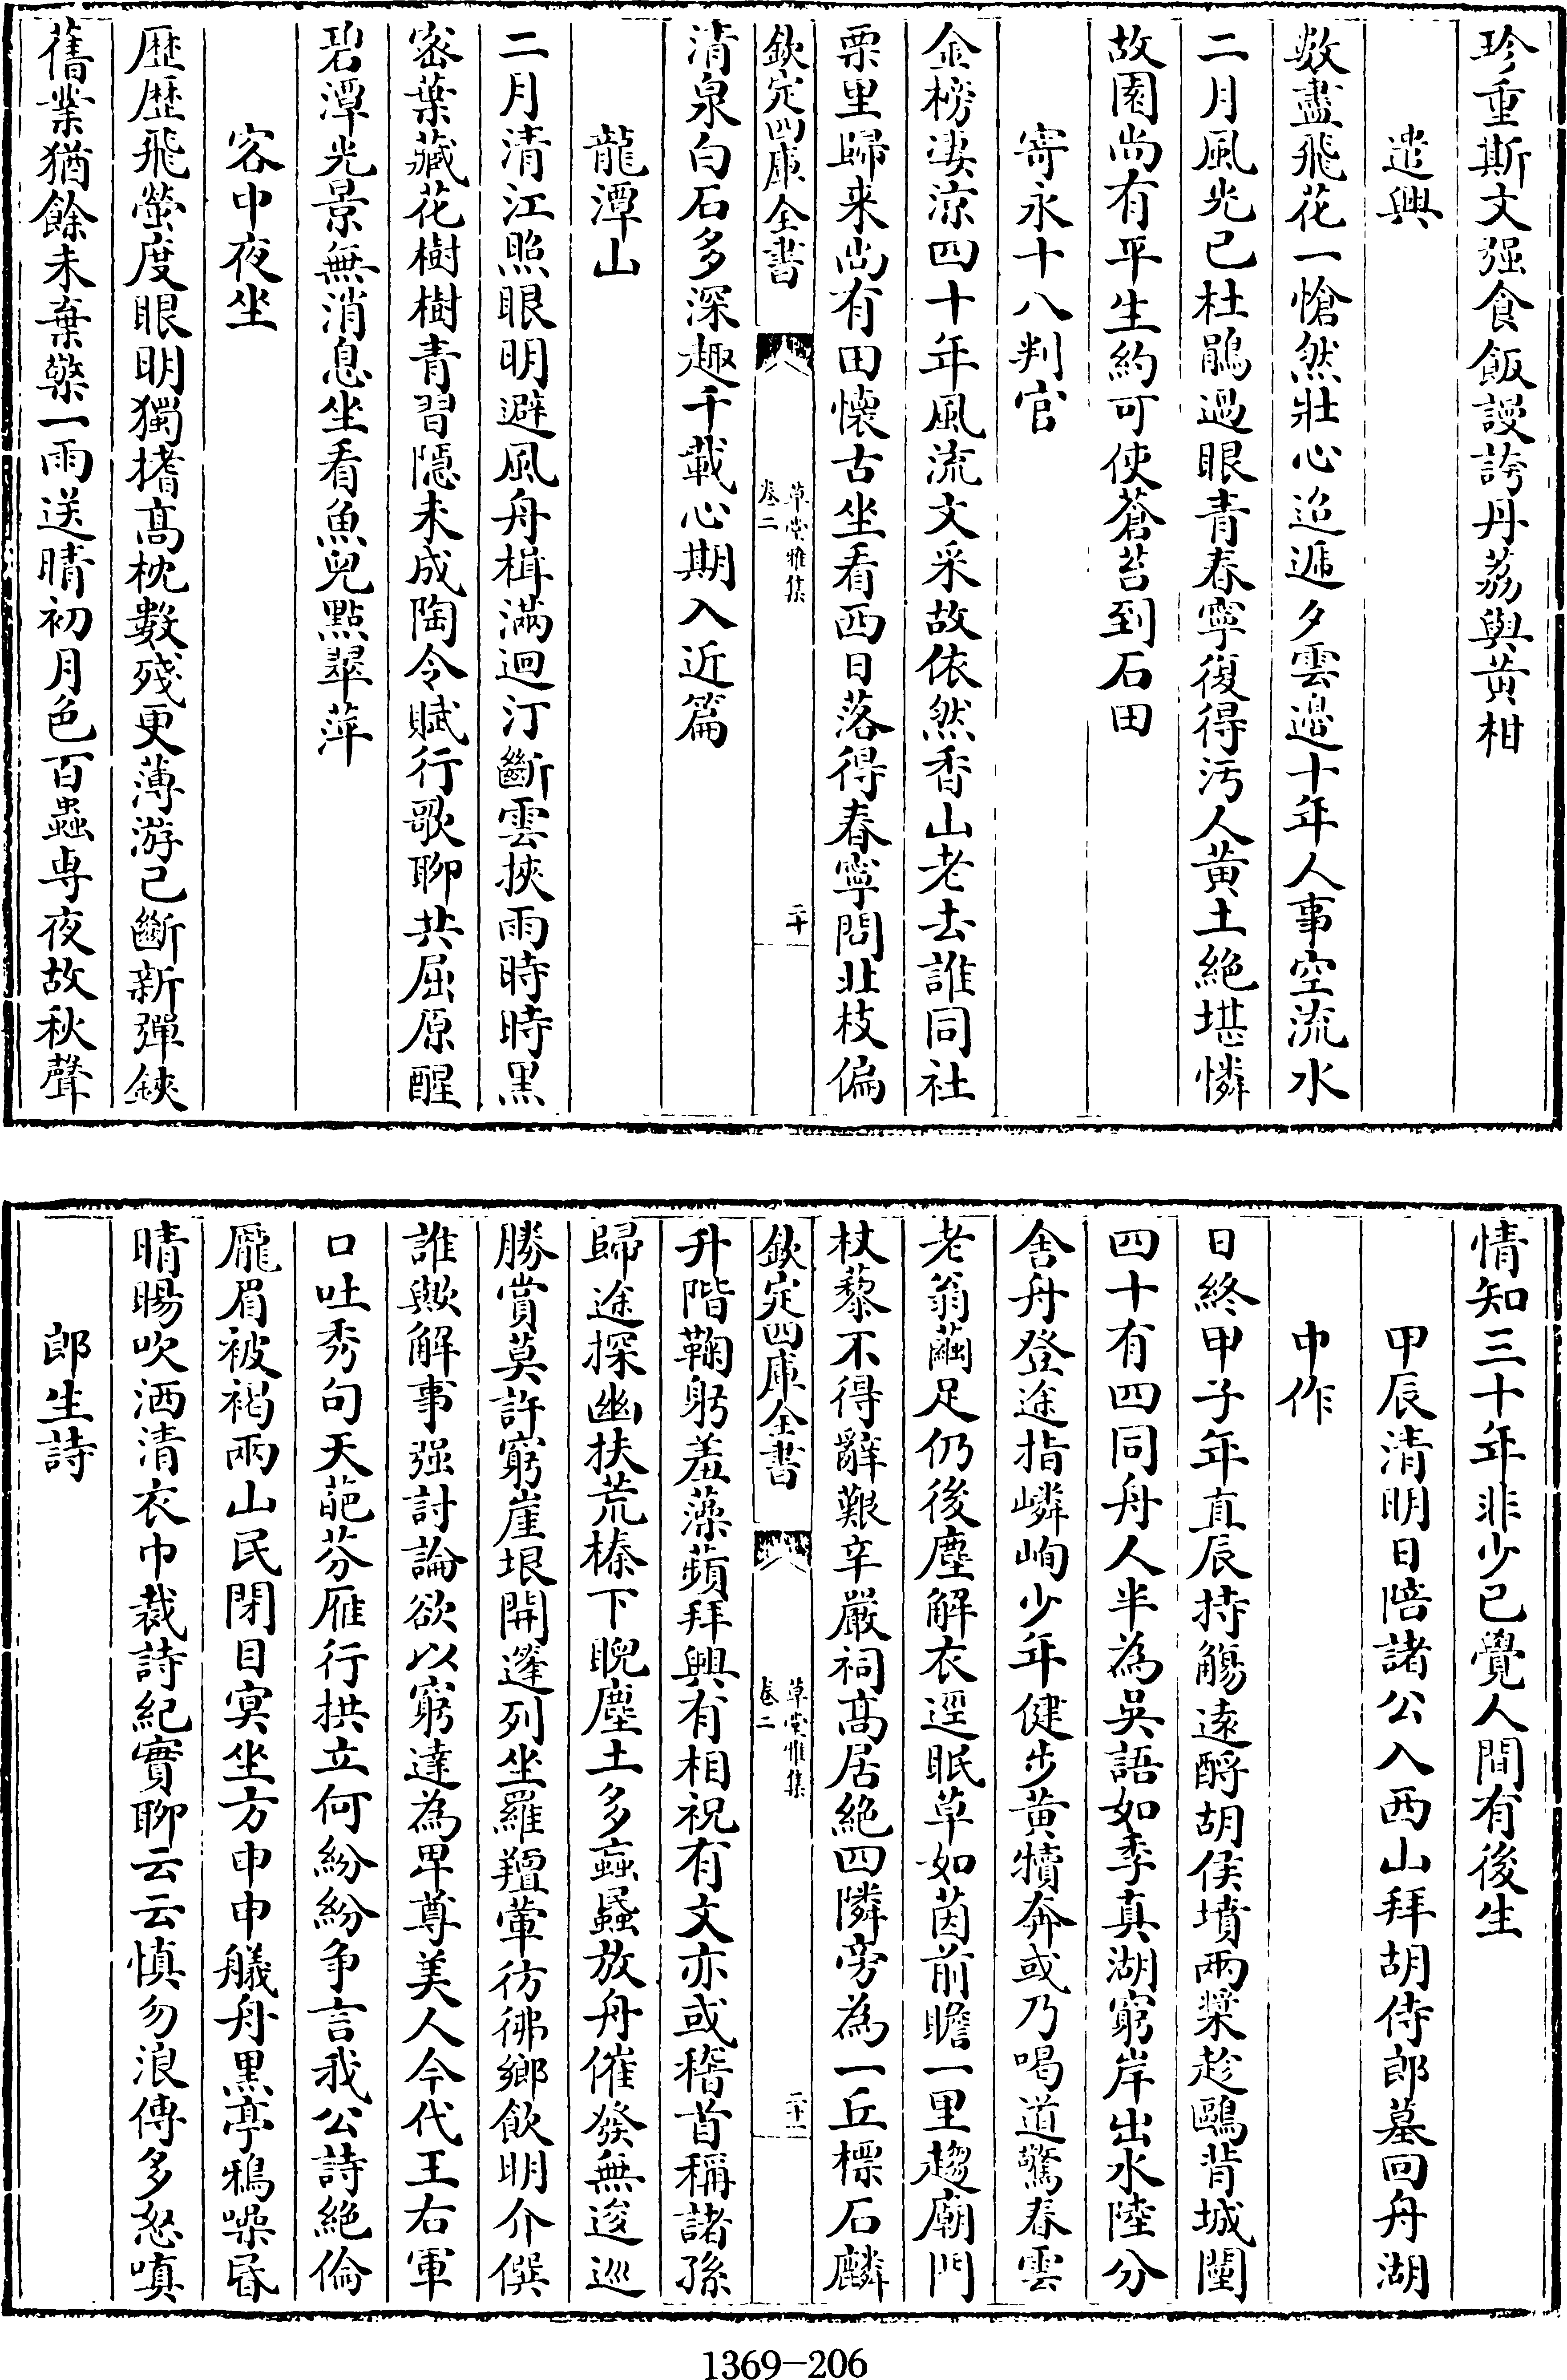 珍重斯文强食飯謾誇丹荔與黄柑
遣興
數盡飛花一愴然壯心迢遞夕雲邉十年人事空流水
二月風光已杜鵑過眼青春寧復得汚人黄土絶堪憐
故園尚有平生約可使蒼苔到石田
寄永十八判官
金榜淒涼四十年風流文采故依然香山老去誰同社
栗里歸来尚有田懷古坐看西日落得春寧問北枝偏
欽定四庫全書
草堂雅集
卷二
二十
清泉白石多深趣千載心期入近篇
龍潭山
二月清江照眼明避風舟楫滿迴汀斷雲挾雨時時黒
宻葉藏花樹樹青習隠未成陶令賦行歌聊共屈原醒
碧潭光景無消息坐看魚兒點翠萍
客中夜坐
歴歴飛螢度眼明獨搘髙枕數殘更薄游已斷新彈鋏
舊業猶餘未棄檠一雨送晴初月色百蟲專夜故秋聲
情知三十年非少已覺人間有後生
甲辰清明日陪諸公入西山拜胡侍郎墓回舟湖
中作
日終甲子年直辰持觴遠酹胡侯墳兩槳趁鷗背城闉
四十有四同舟人半為吳語如季真湖窮岸出水陸分
舍舟登途指嶙峋少年健步黄犢奔或乃喝道驚春雲
老翁繭足仍後塵解衣逕眠草如茵前瞻一里趨廟門
杖藜不得辭艱辛嚴祠髙居絶四隣旁為一丘標石麟
欽定四庫全書
草堂雅集
卷二
二十一
升階鞠躬羞藻蘋拜興有相祝有文亦或稽首稱諸孫
歸途探幽扶荒榛下睨塵土多蝱蟁放舟催發無逡巡
勝賞莫許窮崖垠開篷列坐羅羶葷彷彿鄉飲明介僎
誰歟解事强討論欲以窮達為卑尊美人今代王右軍
口吐秀句天葩芬雁行拱立何紛紛争言我公詩絶倫
龎眉被褐兩山民閉目㝠坐方申申艤舟黒亭鴉噪昏
晴暘吹洒清衣巾裁詩紀實聊云云慎勿浪傳多怒嗔
郎生詩
1369—206